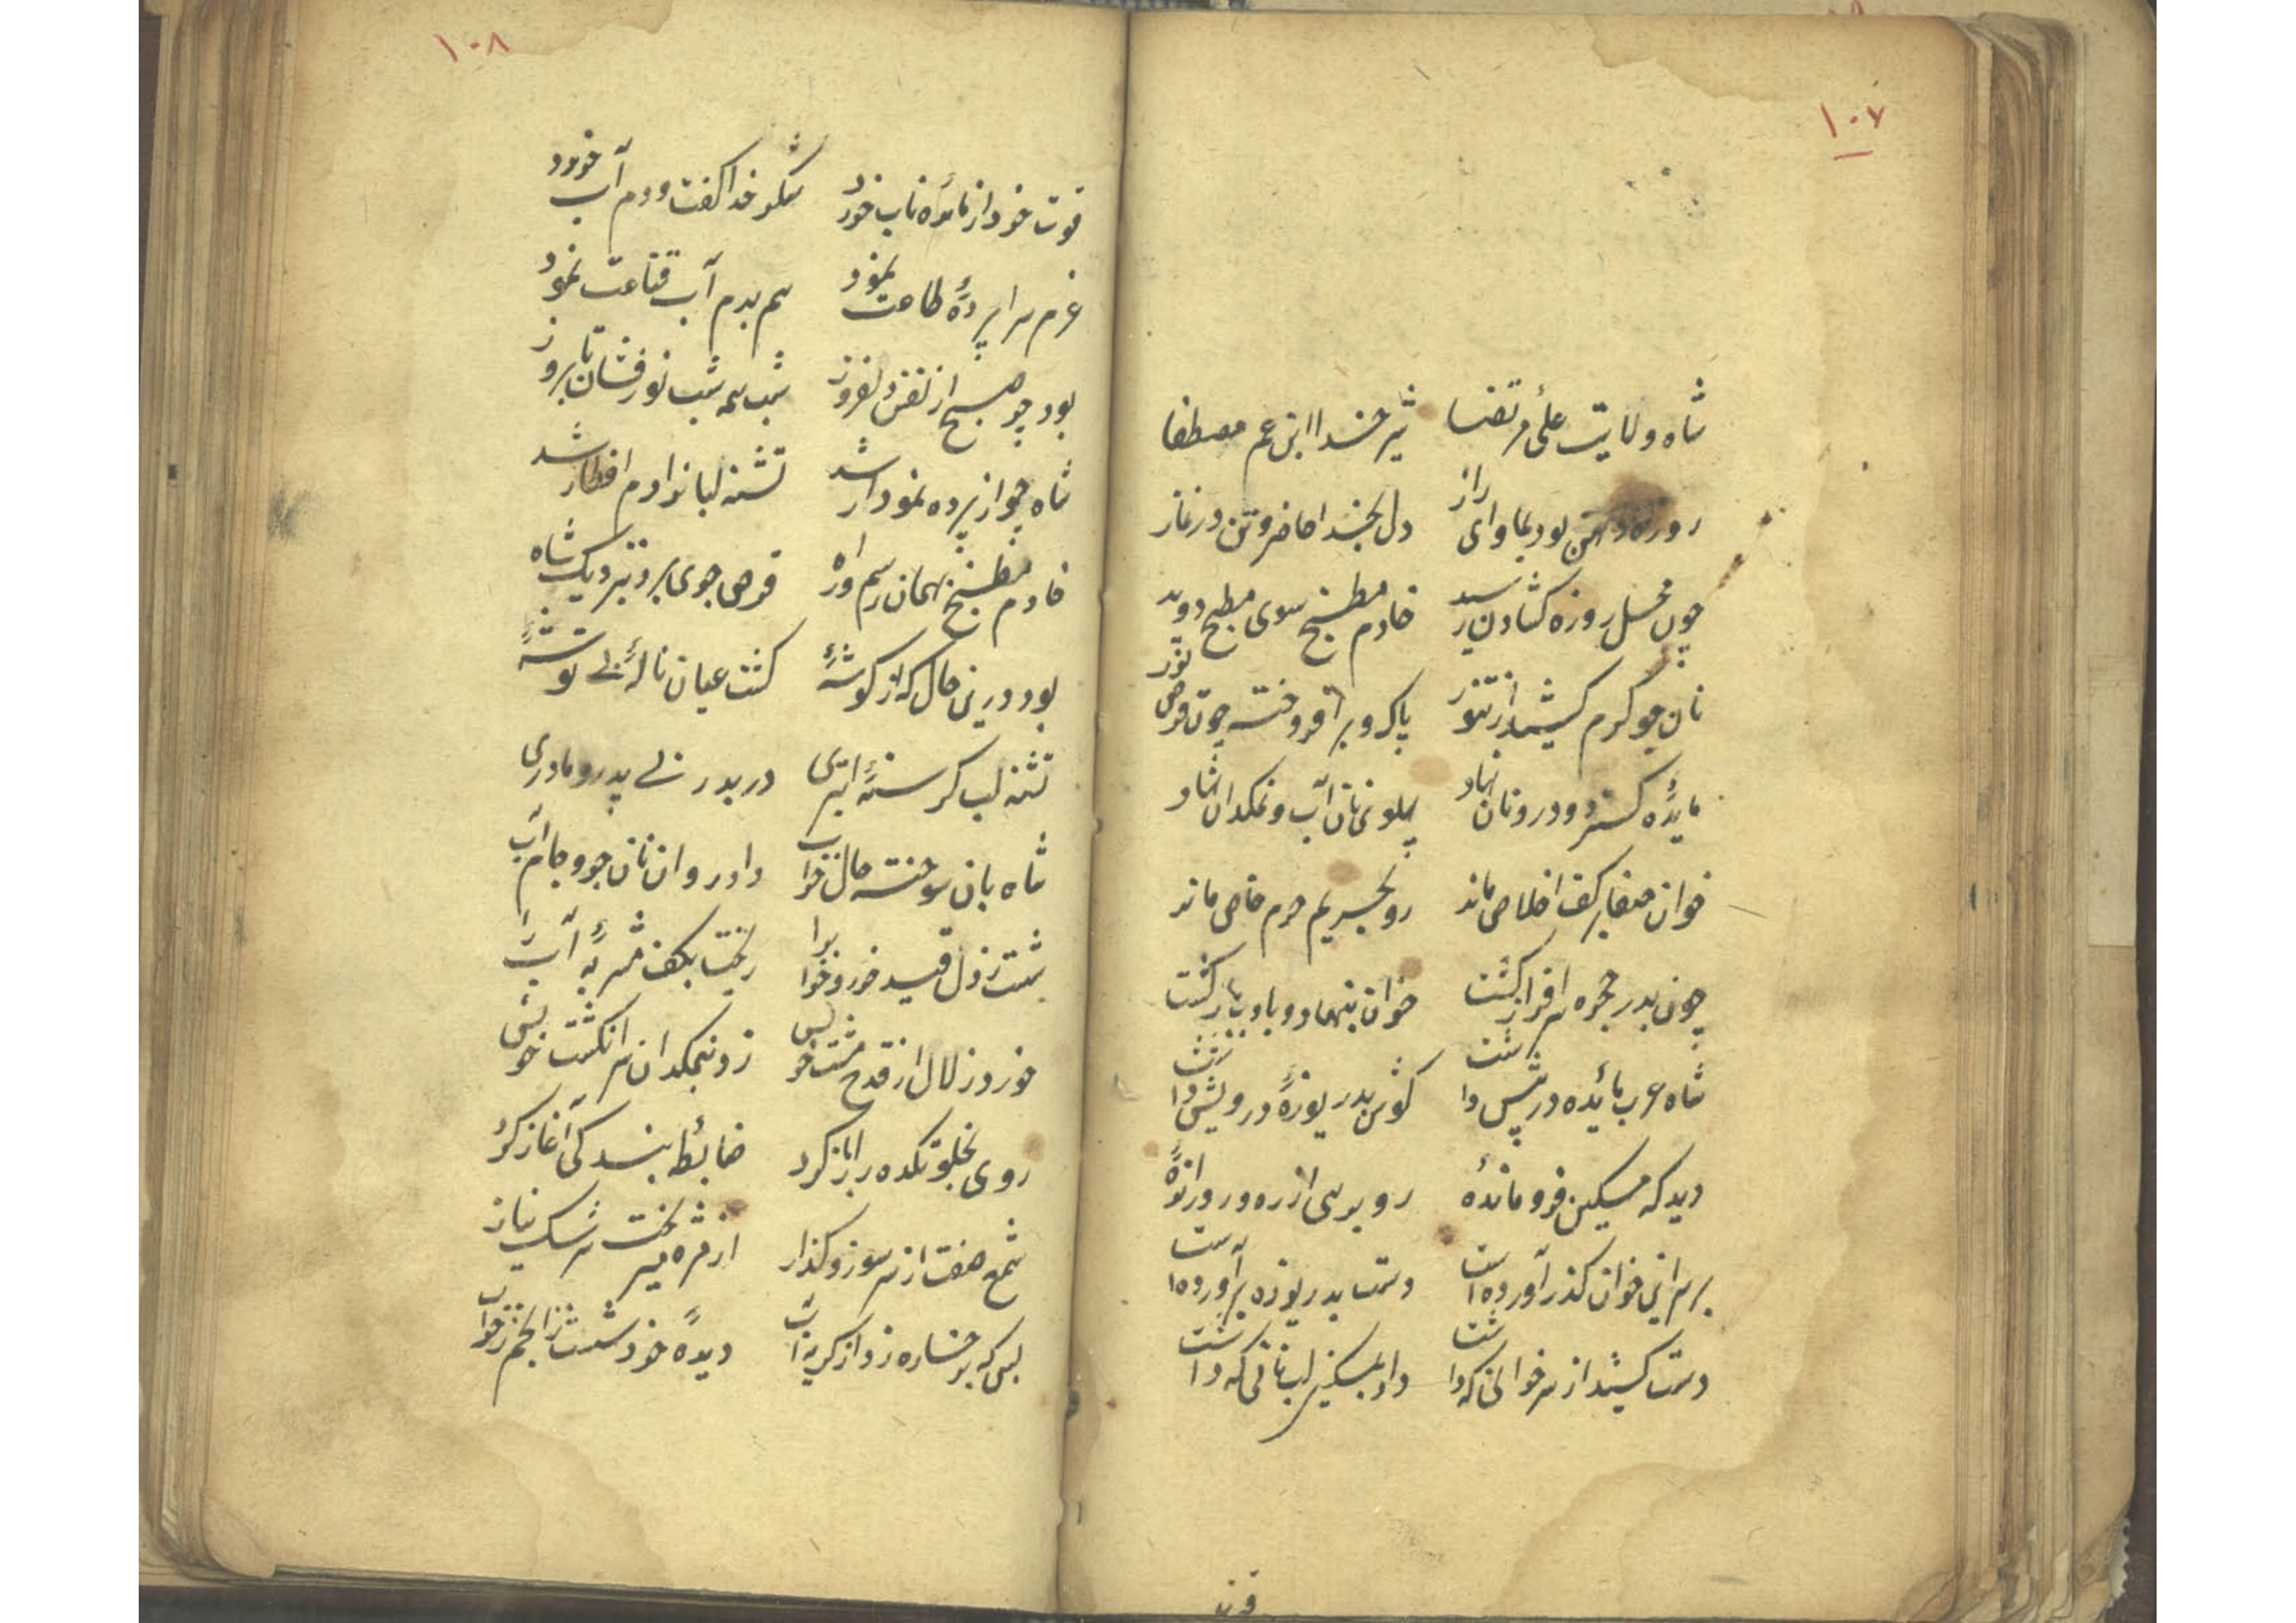 ۱۰۷
شاه ولایت علی مرتضا شیر خدا ابن عم مصطفا
روزه دهن بود بماوای راز دل بخدا حاضر و تن در نماز
چون محل روزه گشادن رسید خادم مطبخ سوی مطبخ دوید
نان جو گرم کشید از تنور پاک و برافروخته چون قرص نور
مایدهٔ گسترد و درو نان نهاد پهلوی نان آب و نمکدان نهاد
خوان صفا بر کف اخلاص ماند رو بحریم حرم خاص ماند
چون بدر حجره سرافراز گشت خوان بنهاد و باد بازگشت
شاه عرب مائده در پیش داشت گوش بدریوزهٔ درویش داشت
دید که مسکین فرو ماندهٔ رو برسی از ره و در راندهٔ
بر سر این خوان گذر آورده است دست بدریوزه برآورده است
دست کشید از سر خوانی که داشت داد بمسکین لب نانی که داشت
قوت
۱۰۸
قوت خود از مائده ناب خورد شکر خدا گفت و دم آب خورد
عزم سراپردهٔ طاعت نمود هم بدم آب قناعت نمود
بود چو صبح از نفس دلفروز شب همه شب نورفشان تا بروز
شاه چو از پرده نمودار شد تشنه لبانرا دم افطار شد
خادم مطبخ بهمان رسم و راه قرص جوی برد بنزدیک شاه
بود درین حال که از گوشهٔ گشت عیان نالهٔ بی توشهٔ
تشنه لب گرسنهٔ ابتری دربدر بی پدر و مادری
شاه بان سوخته حال خراب داد روان نان جو و جام آب
شست ز دل قید خور و خواب را ریخت بکف شربهٔ آب را
خورد زلال از قدح مشت خویش زد بنمکدان سر انگشت خویش
روی بخلوتکدهٔ راز کرد ضابطه بندگی آغاز کرد
شمع صفت از سر سوز و گداز از مژه میریخت سرشک نیاز
بس که برخساره زد از گریه آب دیدهٔ خود شست ز انجم ز خواب